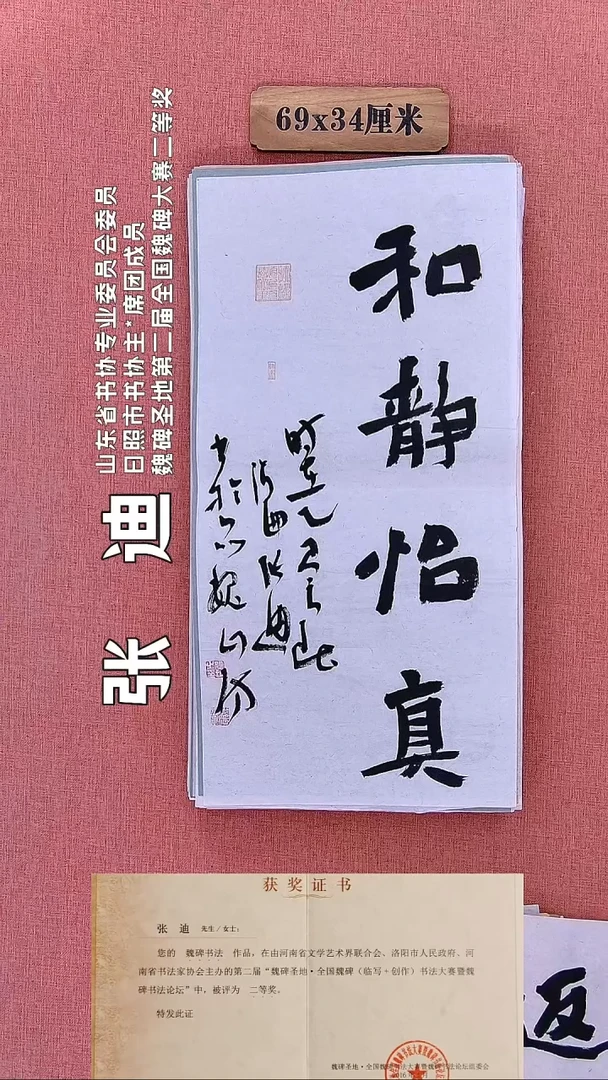 69x34厘米
和静怡真
山东省书协专业委员会委员
日照市书协主*席团成员
魏碑圣地第二届全国魏碑大赛二等奖
张 迪
获奖证书
张 迪 先生/女士:
您的 魏碑书法 作品,在由河南省文学艺术界联合会、洛阳市人民政府、河
南省书法家协会主办的第二届“魏碑圣地·全国魏碑(临写+创作)书法大赛暨魏
碑书法论坛”中,被评为 二等奖。
特发此证
魏碑圣地·全国魏碑书法大赛暨魏碑书法论坛组委会
返